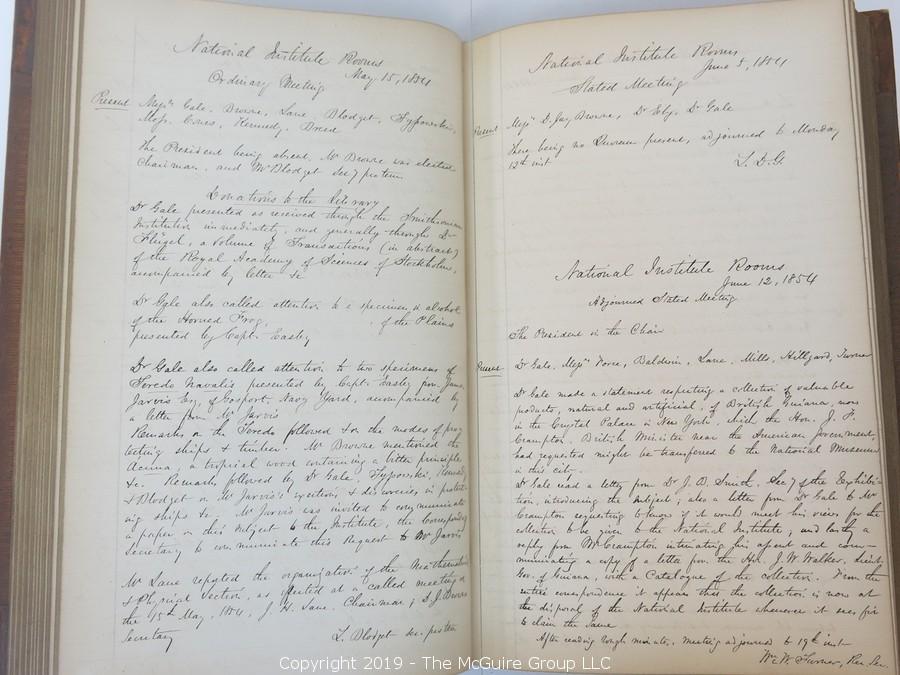 National Institute Rooms
May 15, 1854
Ordinary Meeting
Present Messrs Gale, Browne, Lane, Blodget,
Kennedy, Breed
The President being absent, Mr Browne was elected
Chairman, and Mr Blodget Secy protem
Donations to the Library
Dr Gale presented as received through the Smithsonian
Institution immediately, and generally through Dr
Flügel, a volume of Transactions (in abstract)
of the Royal Academy of Sciences of Stockholm,
accompanied by letter &c
Dr Gale also called attention to a specimen, in alcohol
of the Horned Frog, of the Plains
presented by Capt. Easby
Dr Gale also called attention to two specimens of
Toredo Navalis presented by Capt. Easby from James
Jarvis Esq. of Gosport Navy Yard, accompanied by
a letter from Mr Jarvis
Remarks on the Toredo followed & on the modes of pro
tecting ships & timber. Mr Browne mentioned the
a tropical wood containing a bitter principle
&c. Remarks followed by Dr Gale, Kennedy
& Blodget on Mr Jarvis's & discoveries in protect
ing ships &c. Mr Jarvis was invited to communicate
a paper on this subject to the Institute, the Corresponding
Secretary to communicate this Request to Mr Jarvis
Mr Lane reported the organization of the Mathematical
& Physical Section, as effected at a called meeting of
the 15th May, 1854, J. H. Lane, Chairman; D. J. Browne
Secretary
L. Blodget sec. pro tem
National Institute Rooms
June 5, 1854
Stated Meeting
Present Messrs D. Jay Browne, Dr Gale
There being no Quorum present, adjourned to Monday
12th inst
L. D. G.
National Institute Rooms
June 12, 1854
Adjourned Stated Meeting
The President in the Chair
Present Dr Gale, Messrs Force, Baldwin, Lane, Mills, Hillgard, Turner
Dr Gale made a statement respecting a collection of valuable
products, natural and artificial, of British Guiana, now
in the Crystal Palace in New York, which the Hon. J. F.
Crampton, British Minister near the American government,
had requested might be transferred to the National Museum
in this city.
Dr Gale read a letter from Dr J. B. Smith, Secy of the Exhibi-
tion, introducing the subject; also a letter from Dr Gale to Mr
Crampton requesting to know if it would meet his views for the
collection to be given to the National Institute; and lastly a
reply from Mr Crampton intimating his assent and com-
municating a copy of a letter from the Hon. J. W. Walker, Lieut.
Gov. of Guiana, with a Catalogue of the collection. From the
entire correspondence it appears that the collection is now at
the disposal of the National Institute whenever it sees fit
to claim the same
After reading rough minutes, meeting adjourned to 19th inst
Wm W. Turner, Rec. Sec.
Copyright 2019 - The McGuire Group LLC